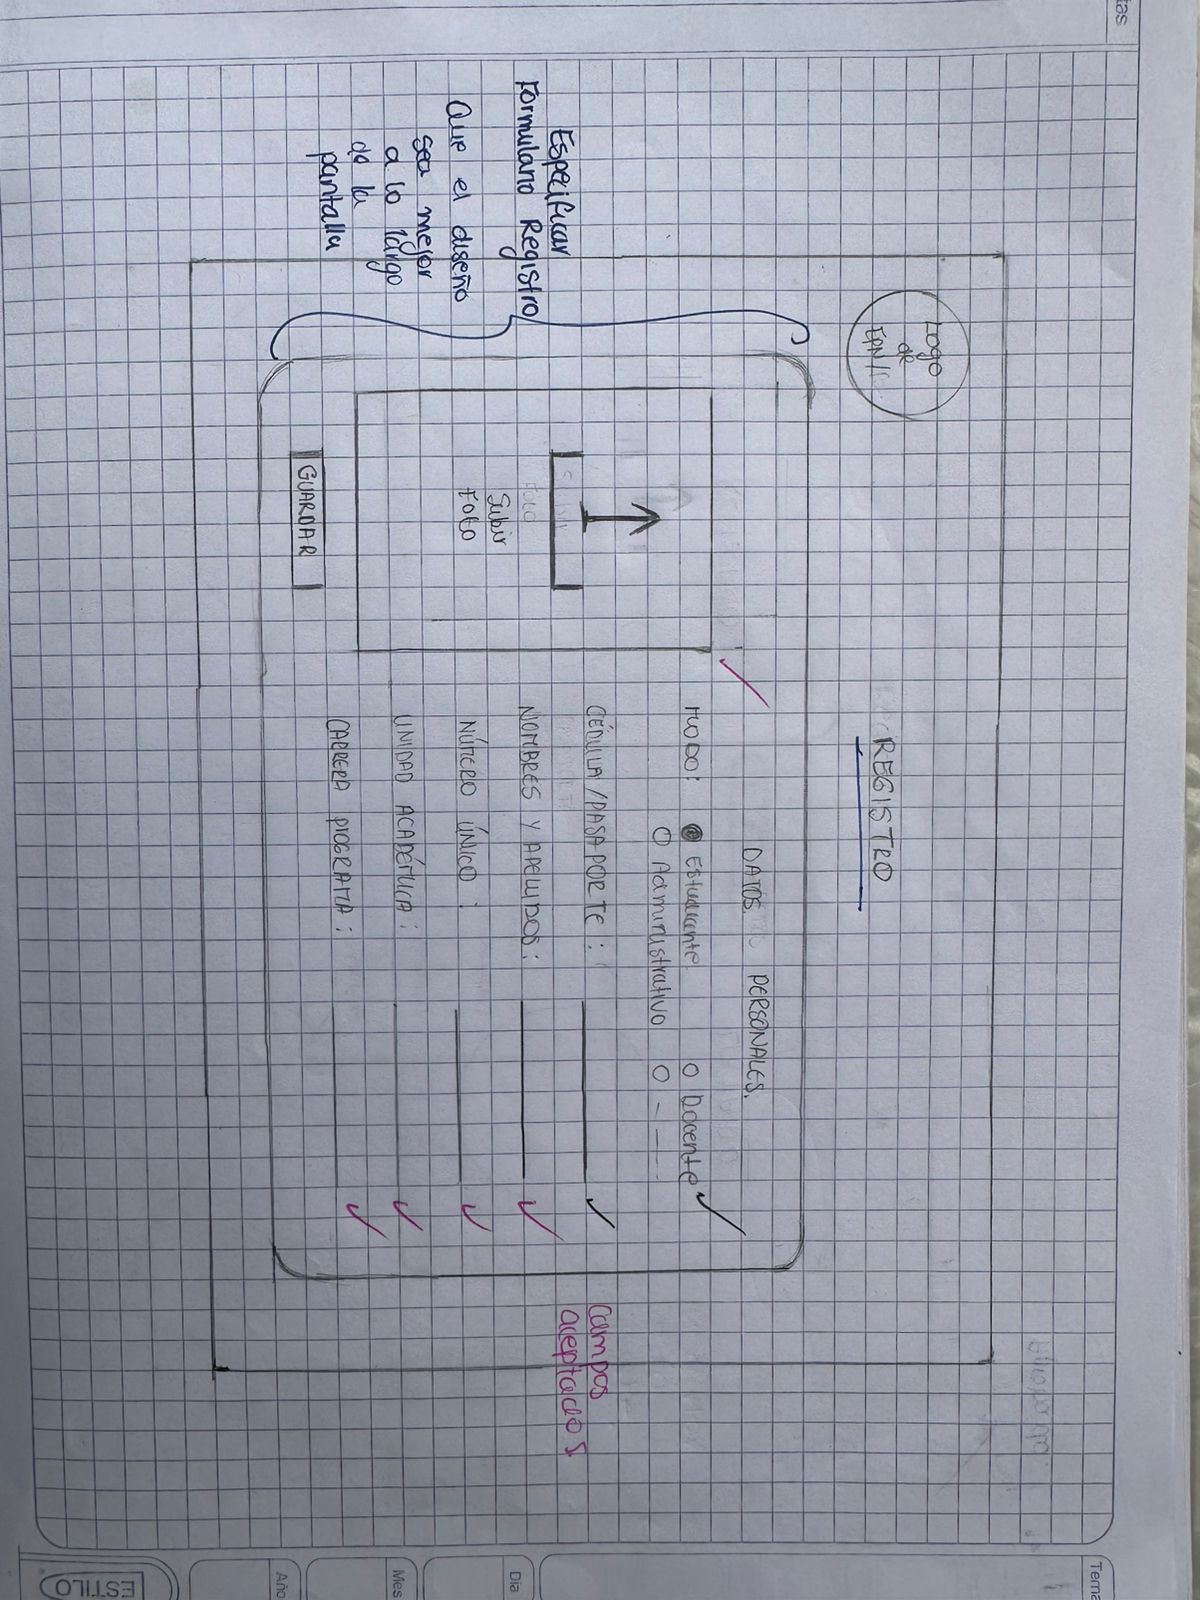 Logo
de
EPN/
REGISTRO
DATOS PERSONALES.
MODO: Estudiante Docente
Administrativo
CÉDULA/PASAPORTE:
NOMBRES Y APELLIDOS:
NÚMERO ÚNICO:
UNIDAD ACADÉMICA:
CARRERA PROGRAMA:
Subir
Foto
GUARDAR
Especificar
Formulario Registro
Que el diseño
sea mejor
a lo largo
de la
pantalla
Campos
aceptados
Tema
Día
Mes
Año
ESTILO